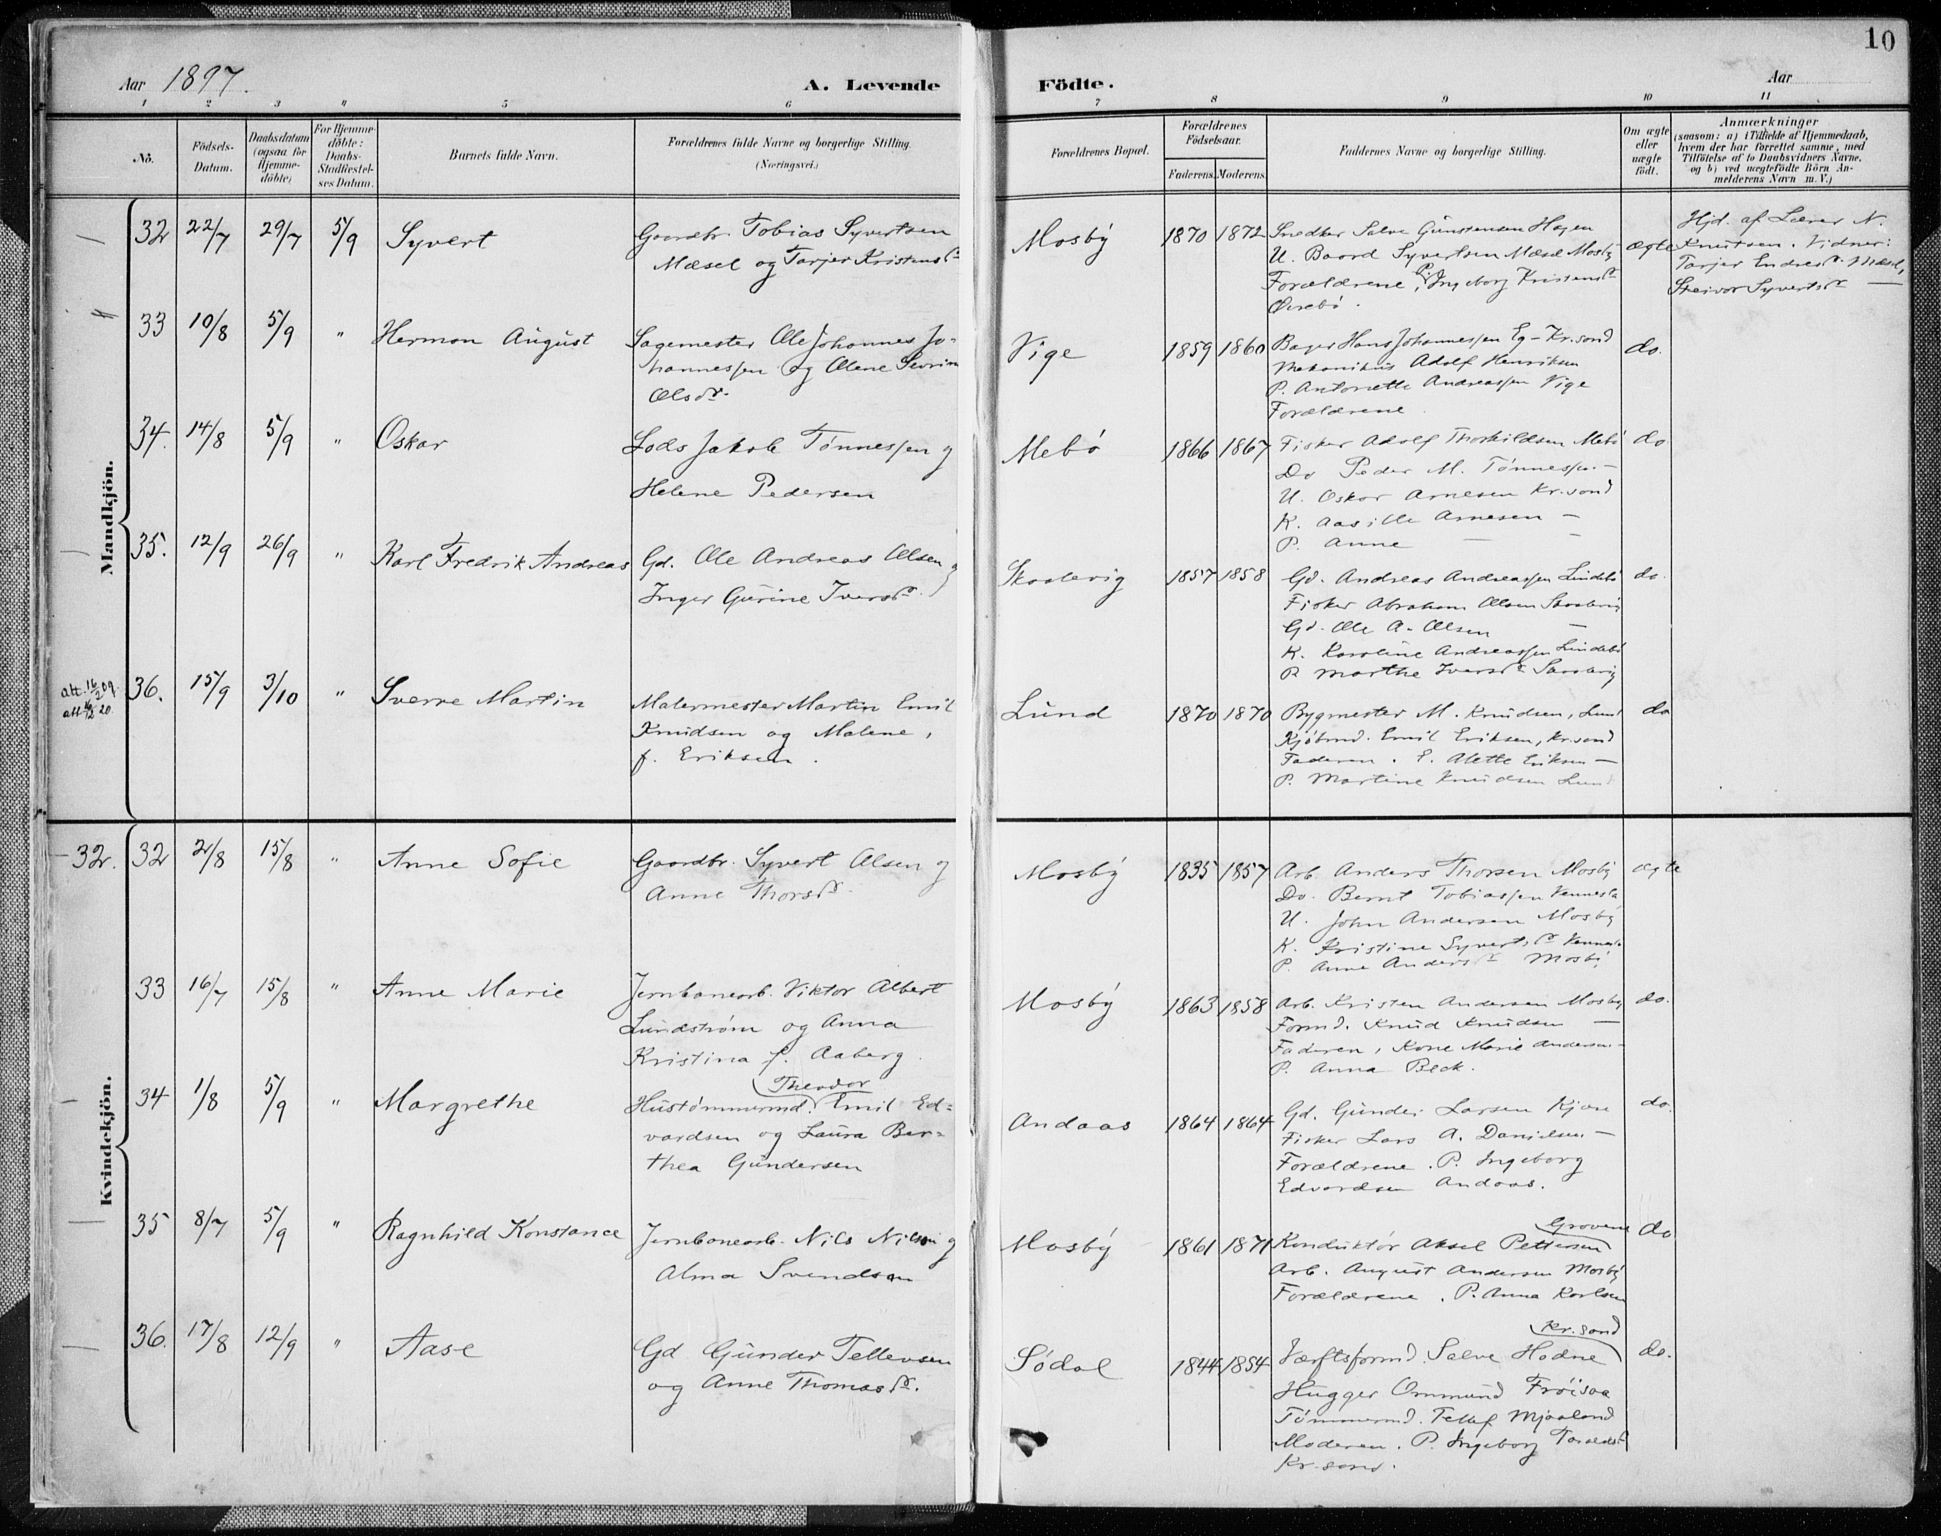 10
Aar 1897.
A. Levende
Födte.
Aar
1 2 3 " 5 6 7 8 9 10 11
No.
Födsels-Datum.
Daabsdatum (ogsaa for Hjemme-döbte)
For Hjemme-döbte: Daabs-Stadfæstel-ses Datum.
Barnets fulde Navn.
Forældrenes fulde Navne og borgerlige Stilling.
(Næringsvei.)
Forældrenes Bopæl.
Forældrenes Födselsaar.
Faderens. Moderens.
Faddernes Navne og borgerlige Stilling.
Om ægte eller uægte födt.
Anmærkninger
(saasom: a) i Tilfælde af Hjemmedaab,
hvem der har forrettet samme, med
Tilföielse af to Daabsvidners Navne,
og b) ved uægtefödte Börn An-
melderens Navn m. V.)
Mandkjön.
32 22/7 29/7 5/9 Syvert
Gaardbr. Tobias Syvertsen
Mæsel og Tarjer Kristensdr
Mosby 1870 1872
Snedker Salve Gunstensen Hagen
U. Baard Syvertsen Mæsel Mosby
Forældrene, P. Ingeborg Kristensdr
Øvrebö.
ægte
Hjd. af Lærer N.
Knutsen. Vidner:
Tarjer Endresdr. Mæsel,
Steivor Syvertsdr —
33 10/8 5/9 " Herman August
Sagemester Ole Johannes Jo-
hannessen og Olene Severine
Olsdr.
Vige 1859 1860
Bager Hans Johannessen Eg - Kr.sand
Mekanikus Adolf Henriksen
P. Antonette Andreassen Vige
Forældrene.
do.
34. 14/8 5/9 " Oskar
Lods Jakob Tönnessen og
Helene Pedersen
Mebö 1866 1867
Fisker Adolf Thorkildsen Mebö
Do Peder M. Tönnessen —
U. Oskar Arnesen Kr.sand
K. Aasille Arnesen —
P. Anne — —
do
35. 12/9 26/9 " Karl Fredrik Andreas
Gd. Ole Andreas Olsen og
Inger Gurine Iversdr.
Skaalevig 1857 1858
Gd. Andreas Andreassen Lindebö
Fisker Abraham Olsen Skaalevig
Gd. Ole A. Olsen —
K. Karoline Andreassen Lindebö
P. Marthe Iversdr Skaalevig
do.
att. 16/2 09.
att. 20.
36. 15/9 3/10 " Sverre Martin
Malermester Martin Emil
Knudsen og Malene,
f. Eriksen.
Lund 1870 1870
Bygmester M. Knudsen, Lund
Kjöbmd. Emil Eriksen, Kr.sand
Faderen. E. Alette Eriksen —
P. Martine Knudsen Lund
do
Kvindekjön.
32. 32 2/8 15/8 " Anne Sofie
Gaardbr. Syvert Olsen og
Anne Thorsdr.
Mosby 1835 1857
Arb. Anders Thorsen Mosby
Do. Bernt Tobiassen Vennesla
U. John Andersen Mosby
K. Kristine Syvertsdr Vennesla
P. Anne Andersdr Mosby
ægte
33 16/7 15/8 " Anne Marie
Jernbanearb. Viktor Albert
Lundström og Anna
Kristina f. Aaberg.
Mosby 1863 1858
Arb. Kristen Andersen Mosby
Formd. Knud Knudsen —
Faderen, Kone Marie Andersen —
P. Anna Beck.
do.
34 1/8 5/9 " Margrethe
Theodor
Hustømmermd. Emil Ed-
vardsen og Laura Ber-
thea Gundersen
Andaas 1864 1864
Gd. Gunder Larsen Kjære
Fisker Lars A. Danielsen —
Forældrene. P. Ingeborg
Edvardsen Andaas.
do.
35 8/7 5/9 " Ragnhild Konstance
Jernbanearb. Nils Nilsen og
Alma Svendsen
Mosby 1861 1871
Grovene
Konduktør Aksel Pettersen
Arb. August Andersen Mosby
Forældrene. P. Anna Karlsen
do
36. 17/8 12/9 " Aase
Gd Gunder Tellevsen
og Anne Thomasdr.
Södal 1844 1854
Kr.sand
Værftsformd. Salve Hodne
Hugger Ommund Fröisaa
Tömmermd. Tellef Mjaaland
Moderen. P. Ingeborg Taraldsdr
Kr.sand.
do.